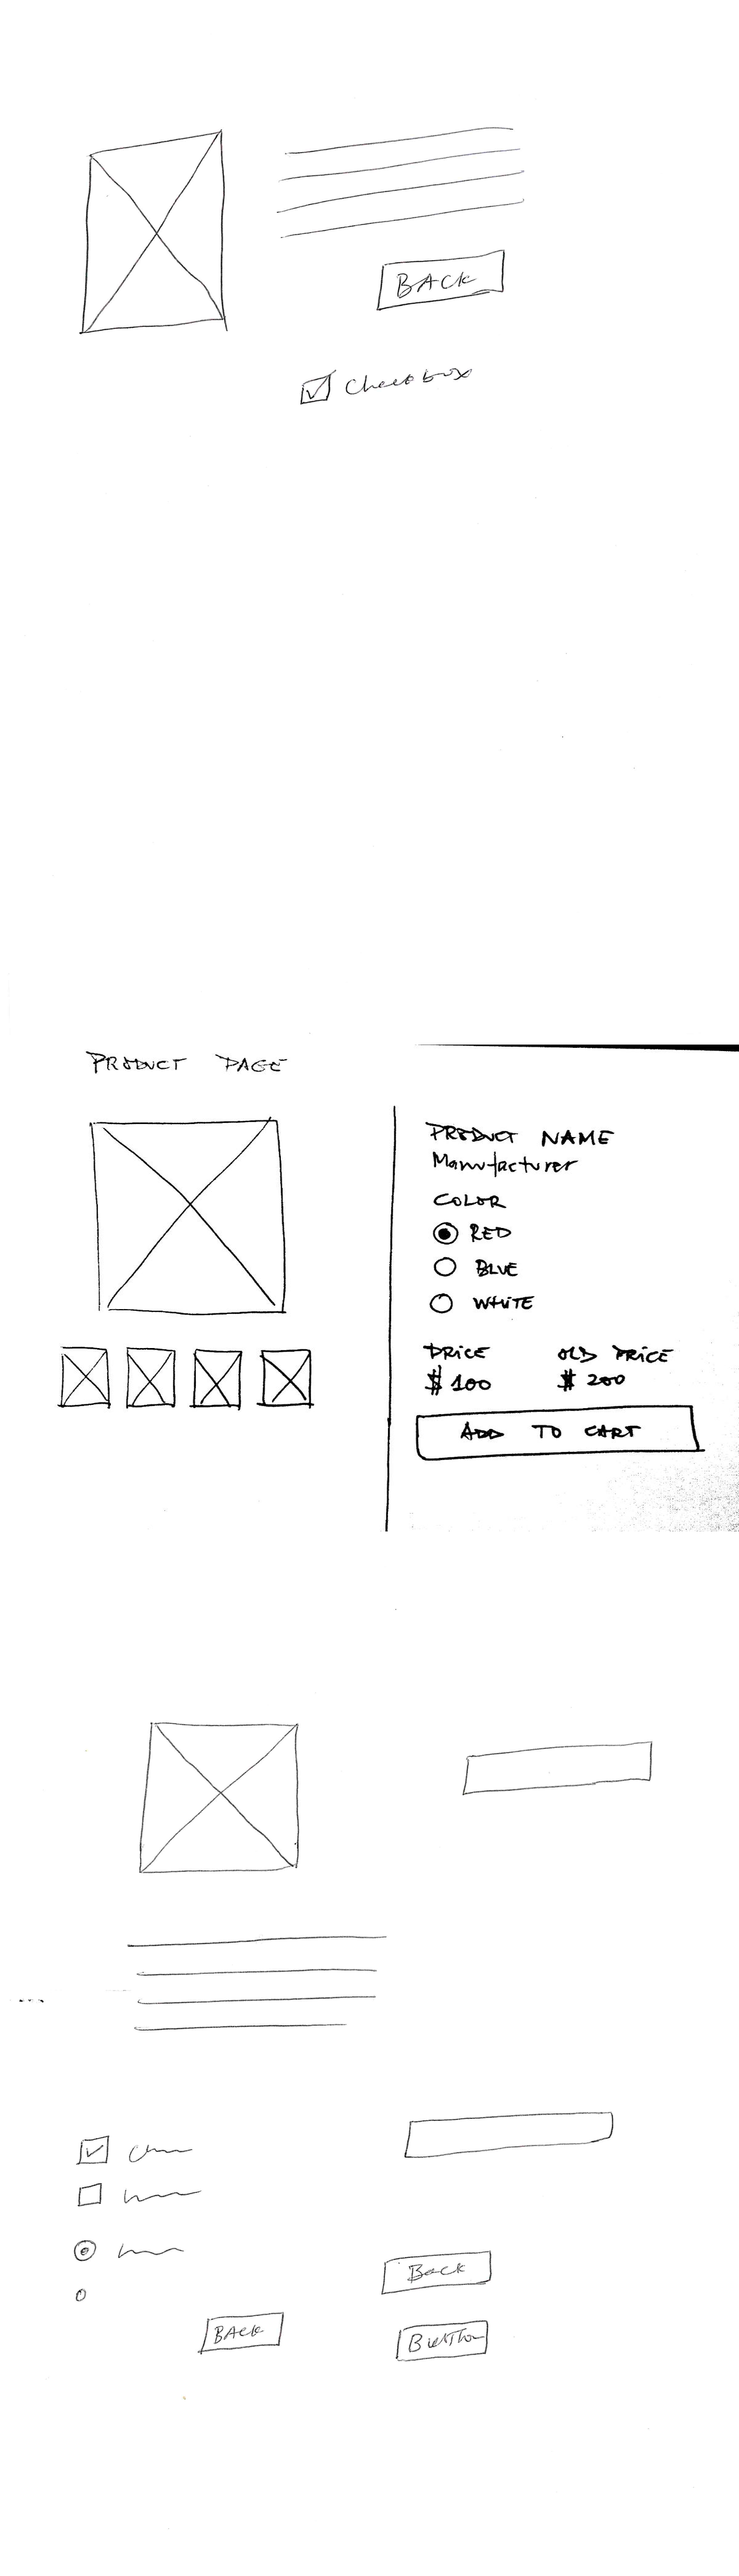 BACK
Checkbox
PRODUCT PAGE
PRODUCT NAME
Manufacturer
COLOR
RED
BLUE
WHITE
PRICE OLD PRICE
$ 100 $ 200
ADD TO CART
Back
BACK
Button